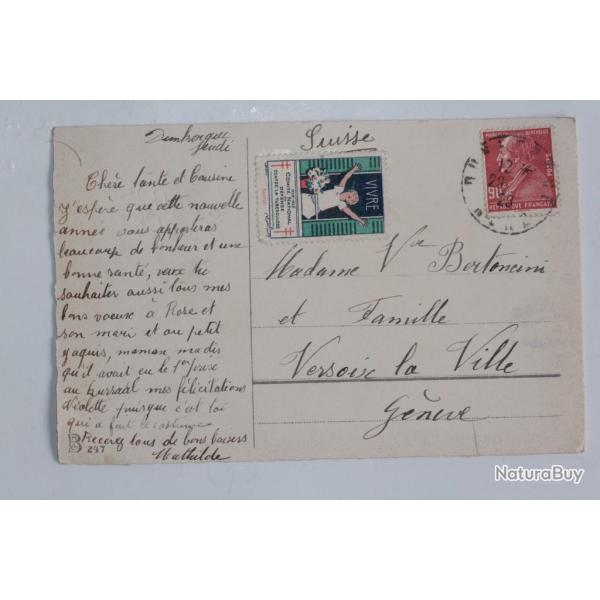 Dunkerque
jeudi
Suisse
Chère tante et Cousine
j'espère que cette nouvelle
année vous apportera
beaucoup de bonheur et une
bonne santé, veux tu
souhaiter aussi tous mes
bons voeux à Rose et
son mari et au petit
maman m'a dis
qu'il avait eu le 1er prix
au Kursaal mes félicitations
Violette puisque c'est toi
qui a fait le costume
Recevez tous de bons baisers
Mathilde
B
247
VIVRE
COMITÉ NATIONAL
DE DÉFENSE
CONTRE LA TUBERCULOSE
BERTHELOT
90c
REPUBLIQUE FRANÇAISE
Madame Vve Bertoncini
et Famille
Versoix la Ville
Genève
NaturaBuy